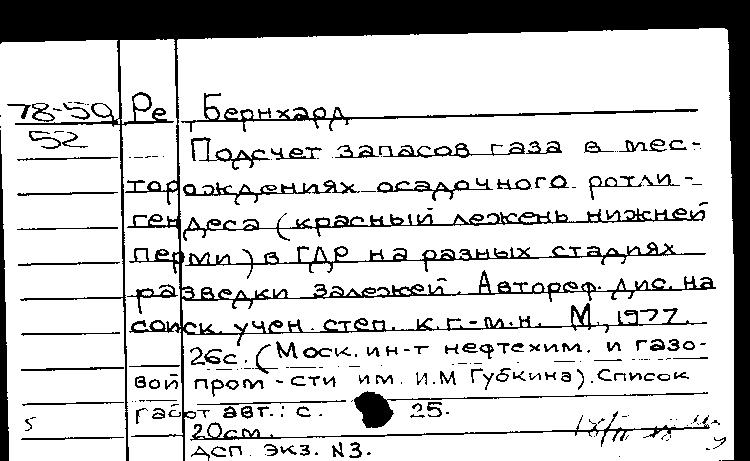 78-59 Ре Бернхард
52
Подсчет запасов газа в мес-
торождениях осадочного ротли-
гендеса (красный лежень нижней
перми) в ГДР на разных стадиях
разведки залежей. Автореф. дис. на
соиск. учен. степ. к.г.-м.н. М., 1977.
26с. (Моск. ин-т нефтехим. и газо-
вой пром-сти им. И.М Губкина). Список
работ авт.: с. 25.
5
20см.
ДСП. экз. N3.